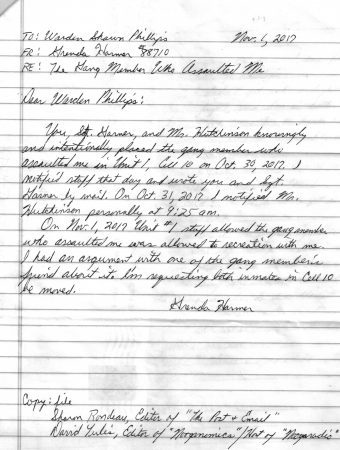 TO: Warden Shawn Phillips Nov. 1, 2017
FR: Grenda Harmer #88710
RE: The Gang Member Who Assaulted Me
Dear Warden Phillips:
You, Sgt. Harver, and Ms. Hutchinson knowingly
and intentionally placed the gang member who
assaulted me in Unit 1, Cell 10 on Oct. 30, 2017. I
notified staff that day and wrote you and Sgt.
Harver by mail. On Oct. 31, 2017 I notified Ms.
Hutchinson personally at 9:25 am.
On Nov. 1, 2017 Unit #1 staff allowed the gang member
who assaulted me was allowed to recreation with me.
I had an argument with one of the gang member's
friend about it. I'm requesting both inmates in Cell 10
be moved.
Grenda Harmer
Copy: file
Sharon Rondeau, Editor of "The Post & Email"
David Tulis, Editor of "Nooganomics"/Host of "Noogaradio"